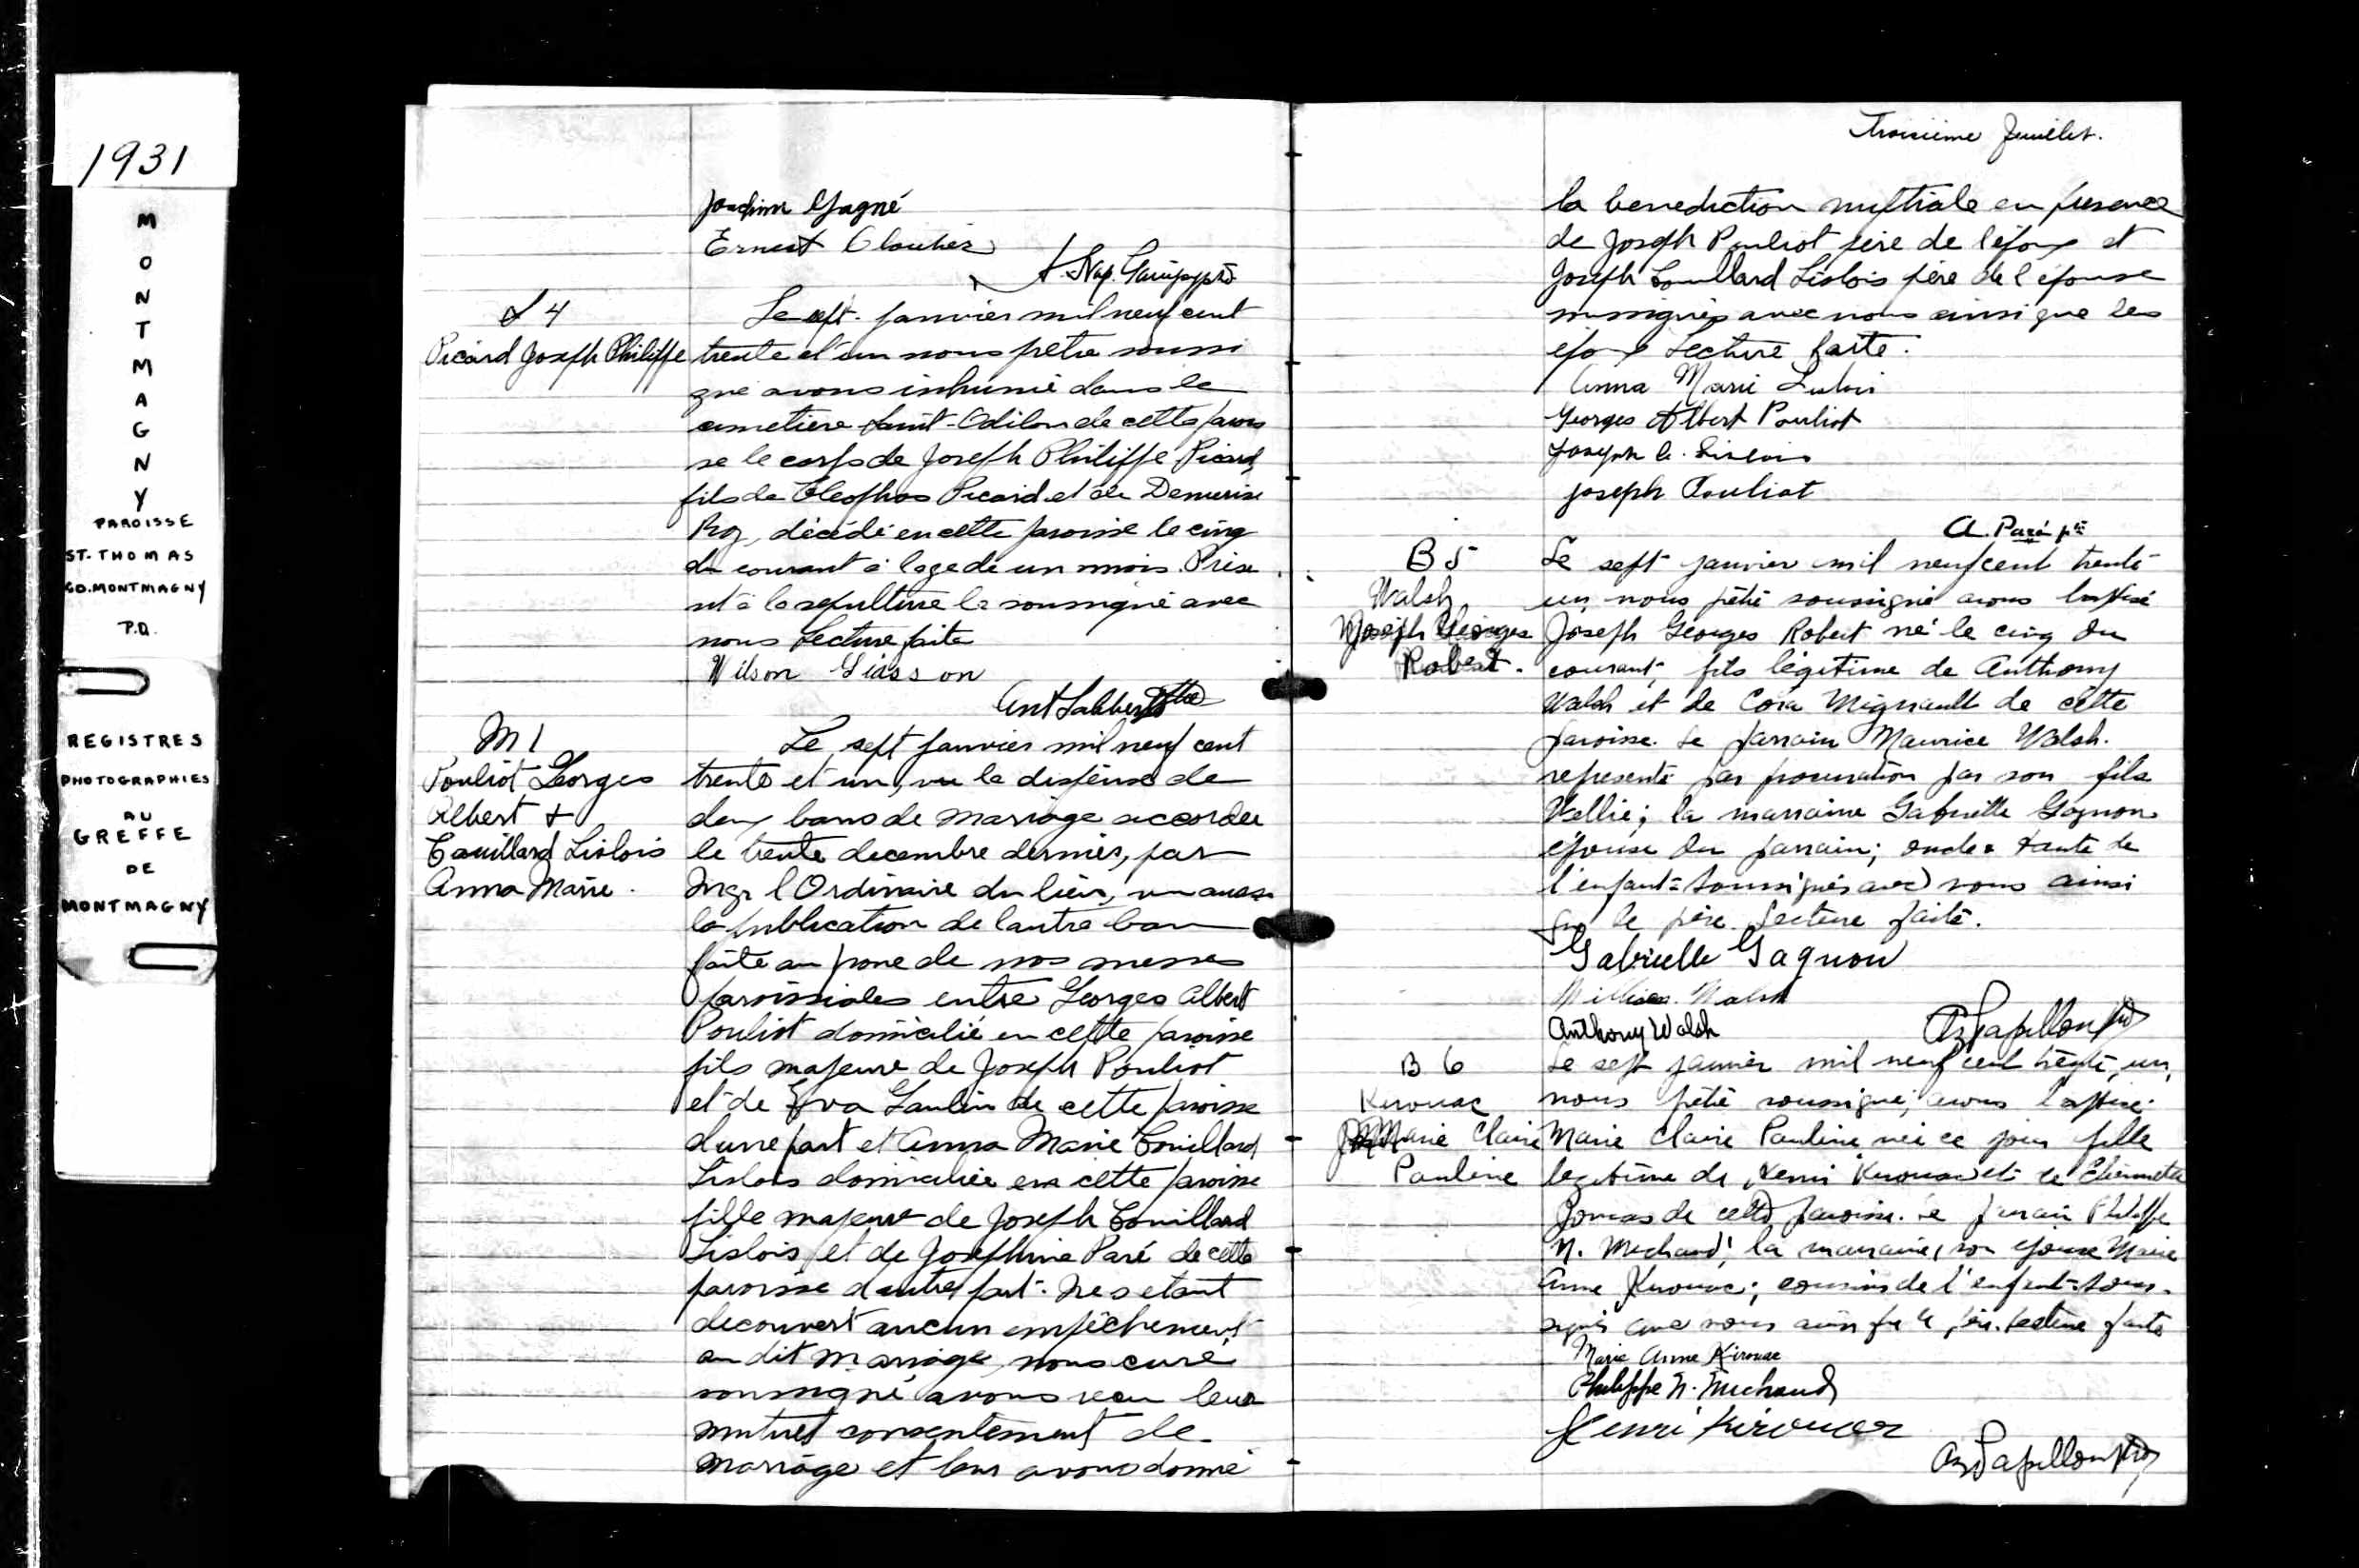 1931
MONTMAGNY
PAROISSE
ST. THOMAS
CO. MONTMAGNY
P.Q.
REGISTRES
PHOTOGRAPHIES
AU
GREFFE
DE
MONTMAGNY
Joachim Gagné
Ernest Cloutier
J. Nap. ptre
S 4
Picard Joseph Philippe
Le sept janvier mil neuf cent
trente et un nous prêtre soussi
gné avons inhumé dans le
cimetière Saint-Odilon de cette parois
se le corps de Joseph Philippe Picard,
fils de Cléophas Picard et de Demerise
Roy, décédé en cette paroisse le cinq
du courant à l'age de un mois. Prése
nt à la sépulture le soussigné avec
nous Lecture faite
Wilson Giasson
Ant Laliberté ptre
M 1
Pouliot Georges
Albert &
Couillard Lislois
Anna Marie.
Le sept janvier mil neuf cent
trente et un, vu la dispense de
deux bans de mariage accordée
le trente decembre dernier, par
Mgr l'Ordinaire du lieu, vu aussi
la publication de l'autre ban
faite au prone de nos messes
paroissiales entre Georges Albert
Pouliot domicilié en cette paroisse
fils majeur de Joseph Pouliot
et de Eva Gaulin de cette paroisse
d'une part et Anna Marie Couillard
Lislois domiciliée en cette paroisse
fille majeure de Joseph Couillard
Lislois et de Josephine Paré de cette
paroisse d'autre part. Ne s'etant
decouvert aucun empêchement
au dit mariage, nous curé
soussigné, avons reçu leur
mutuel consentement de
mariage et leur avons donné
Troisième feuillet.
la benediction nuptiale en presence
de Joseph Pouliot père de l'époux et
Joseph Couillard Lislois père de l'épouse
soussignés avec nous ainsi que les
époux Lecture faite.
Anna Marie Lislois
Georges Albert Pouliot
Joseph C. Lislois
Joseph Pouliot
A. Paré ptre
B 5
Walsh
Joseph Georges
Robert.
Le sept janvier mil neuf cent trente
un, nous prêtre soussigné avons baptisé
Joseph Georges Robert né le cinq du
courant, fils légitime de Anthony
Walsh et de Cora Mignault de cette
paroisse. Le parrain Maurice Walsh.
représenté par procuration par son fils
Wellie; la marraine Gabrielle Gagnon
épouse du parrain; oncle & tante de
l'enfant soussignés avec nous ainsi
que le père. Lecture faite.
Gabrielle Gagnon
Walsh
Anthony Walsh
Papillon ptre
B 6
Kirouac
Marie Claire
Pauline
Le sept janvier mil neuf cent trente, un,
nous prêtre soussigné, avons baptisé
Marie Claire Pauline née ce jour fille
legitime de Henri Kirouac et de
de cette paroisse. Le parrain Philippe
N. Michaud; la marraine, son épouse Marie
Anne Kirouac; cousins de l'enfant sous-
signés avec nous ainsi que le père. Lecture faite
Marie Anne Kirouac
Philippe N. Michaud
Henri Kirouac
Papillon ptre